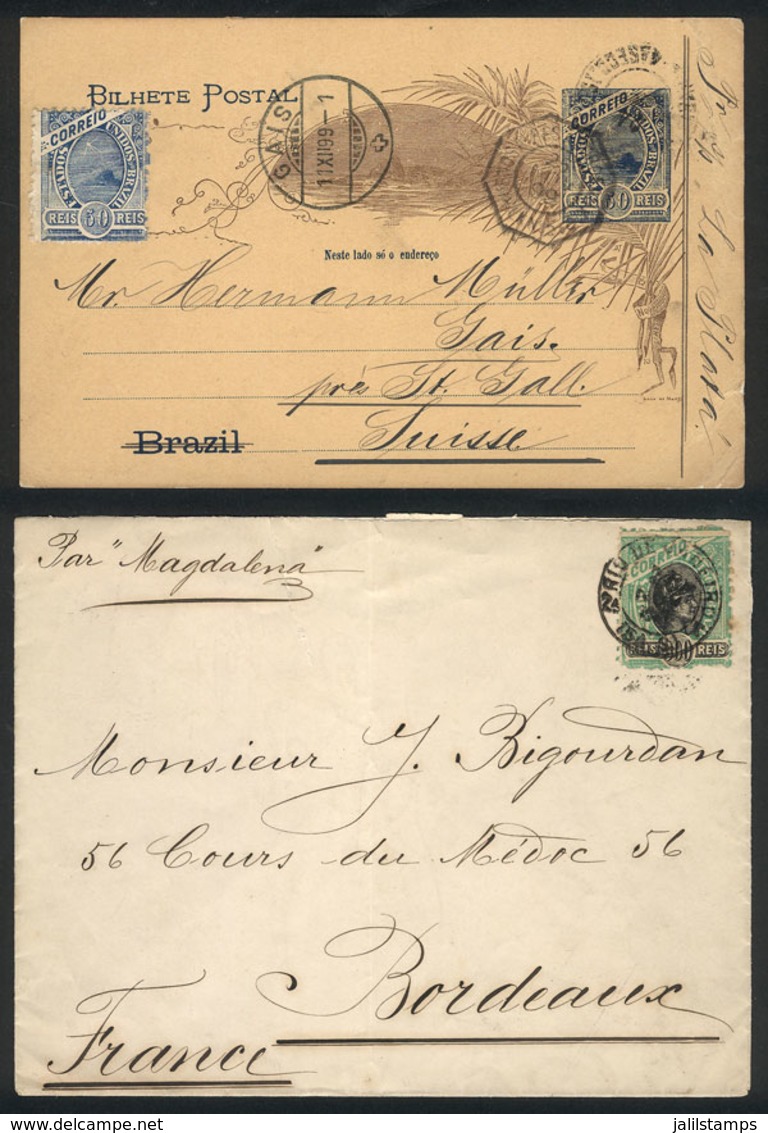 BILHETE POSTAL
CORREIO
ESTADOS UNIDOS BRAZIL
REIS 50 REIS
GAIS
1.XII.99-1
CORREIO
ESTADOS UNIDOS BRAZIL
REIS 50 REIS
Neste lado só o endereço
Mr. Hermann Müller
Gais.
près St. Gall.
Brazil
Suisse
La Plata
Par "Magdalena"
RIO DE JANEIRO
CORREIO
REIS REIS
Monsieur J. Bigourdan
56 Cours du Médoc 56
Bordeaux
France
jalilstamps